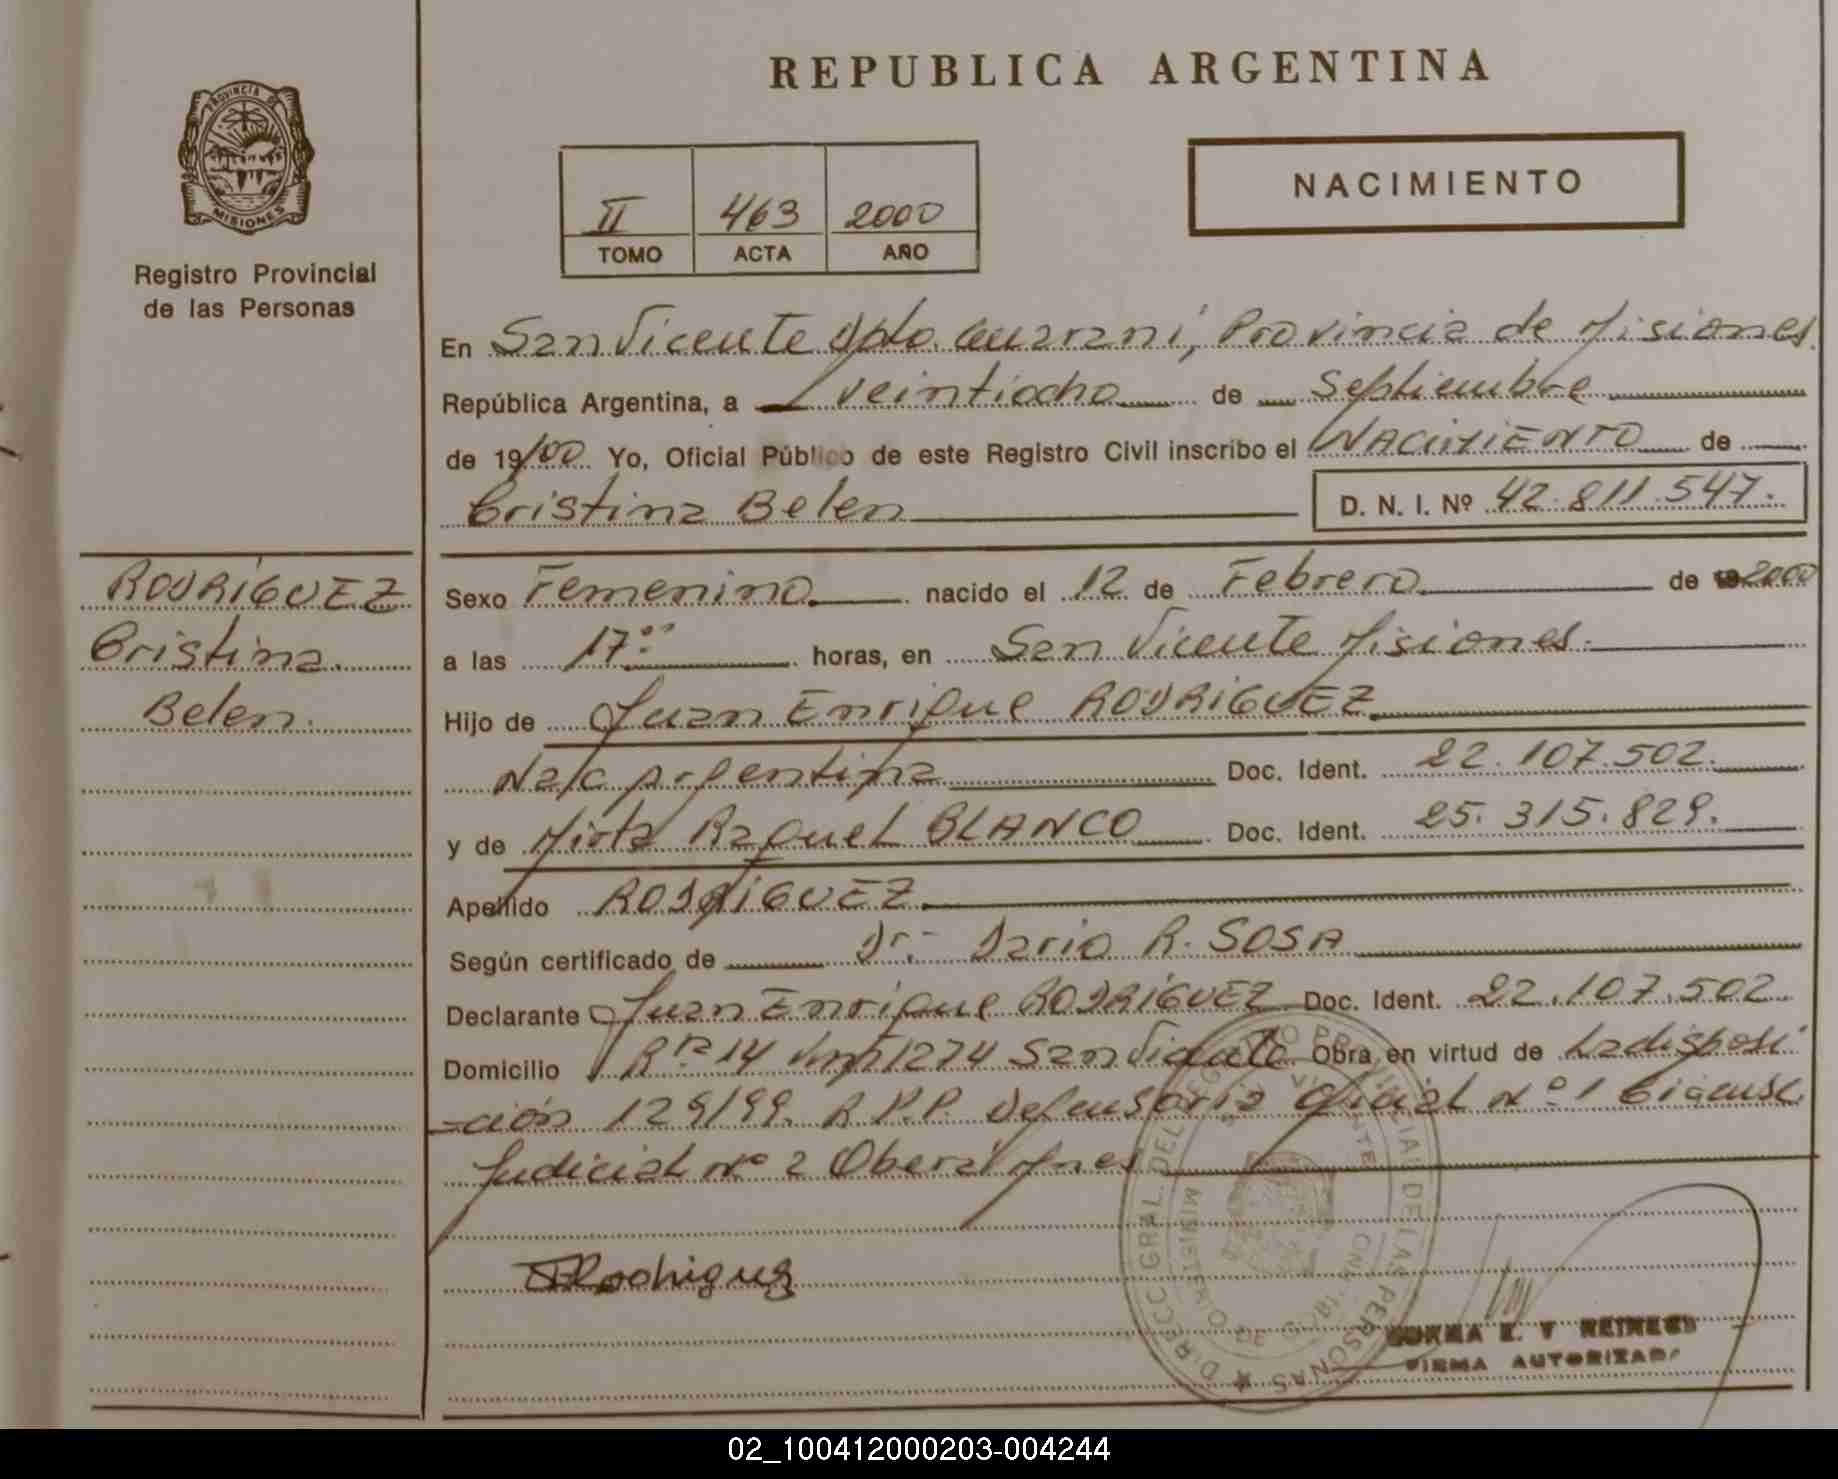 REPUBLICA ARGENTINA
PROVINCIA DE
MISIONES
Registro Provincial
de las Personas
II 463 2000
TOMO ACTA AÑO
NACIMIENTO
En San Vicente Dpto. Guaraní, Provincia de Misiones.
República Argentina, a veintiocho de Septiembre
de 19/00 Yo, Oficial Público de este Registro Civil inscribo el NACIMIENTO de
Cristina Belen D. N. I. Nº 42.811.547.
RODRÍGUEZ
Cristina
Belen.
Sexo Femenino nacido el 12 de Febrero de 2000
a las 17:00 horas, en San Vicente Misiones.
Hijo de Juan Enrique RODRIGUEZ
Nac Argentina Doc. Ident. 22.107.502.
y de Mirta Raquel BLANCO Doc. Ident. 25.315.829.
Apellido RODRÍGUEZ
Según certificado de Dr. Dario R. SOSA
Declarante Juan Enrique RODRÍGUEZ Doc. Ident. 22.107.502.
Domicilio Rta 14 1274 San Vicente Obra en virtud de La disposi
-ción 129/99. R.P.P. Defensoria Oficial Nº 1
Judicial Nº 2 Obera Mnes
Rodriguez
DIRECC. GRAL. DEL REGISTRO PROVINCIAL DE LAS PERSONAS
MINISTERIO DE
FIRMA AUTORIZADA
02_100412000203-004244